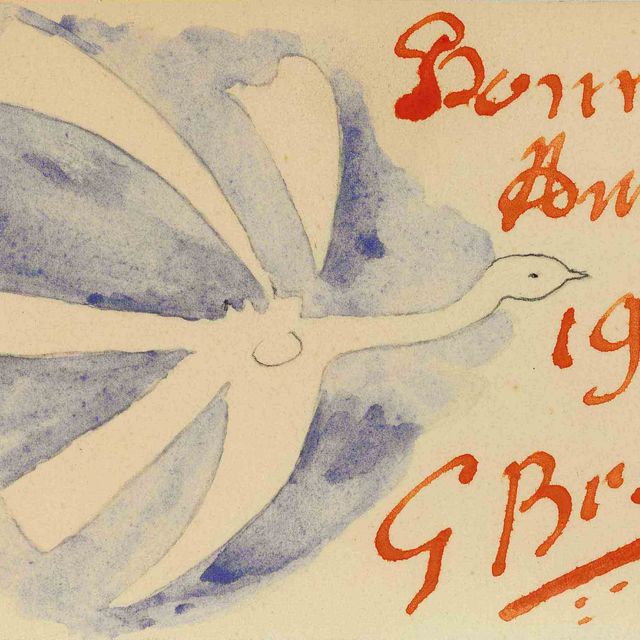 Bonn
Ann
19
G Br